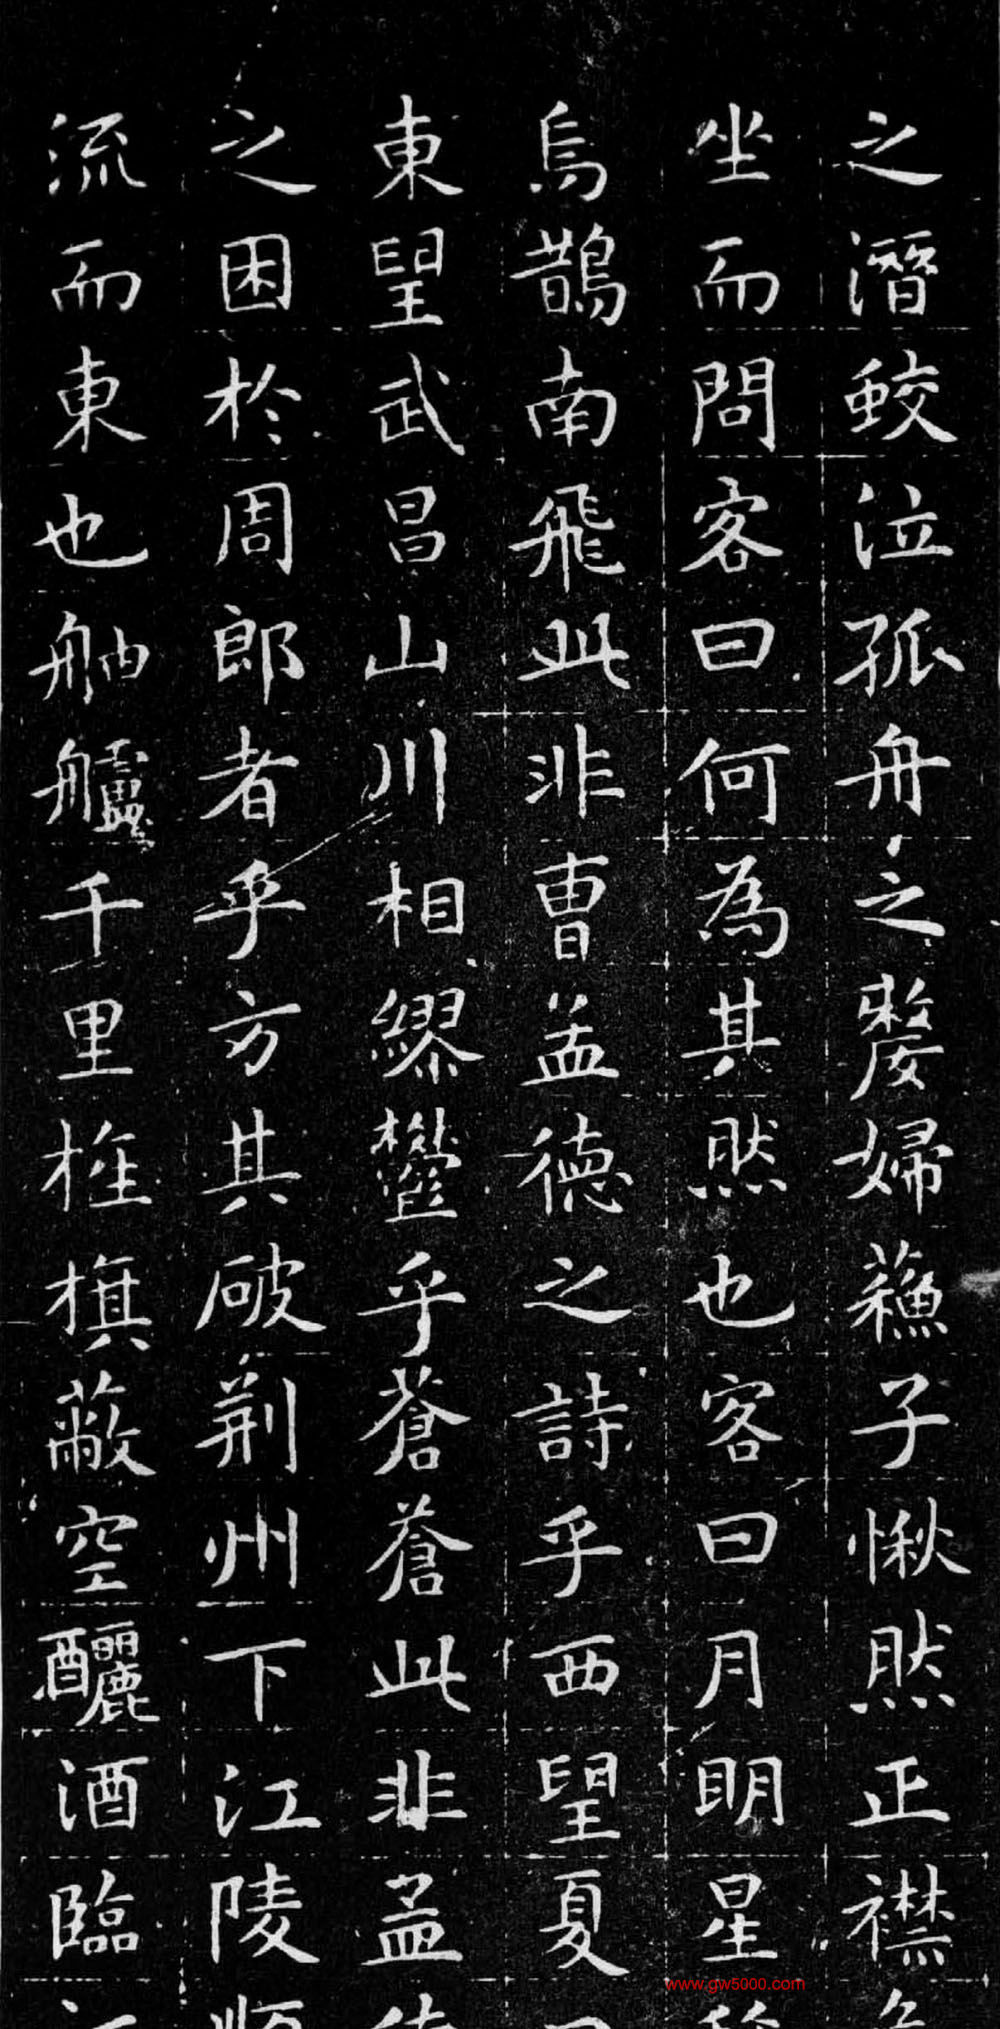 之潛鮫泣孤舟之嫠婦蘓子愀然正襟
坐而問客曰何為其然也客曰月明星
烏鵲南飛此非曹孟德之詩乎西望夏
東望武昌山川相繆欝乎蒼蒼此非孟
之困於周郎者乎方其破荊州下江陵
流而東也舳艫千里旌旗蔽空釃酒臨
www.gw5000.com